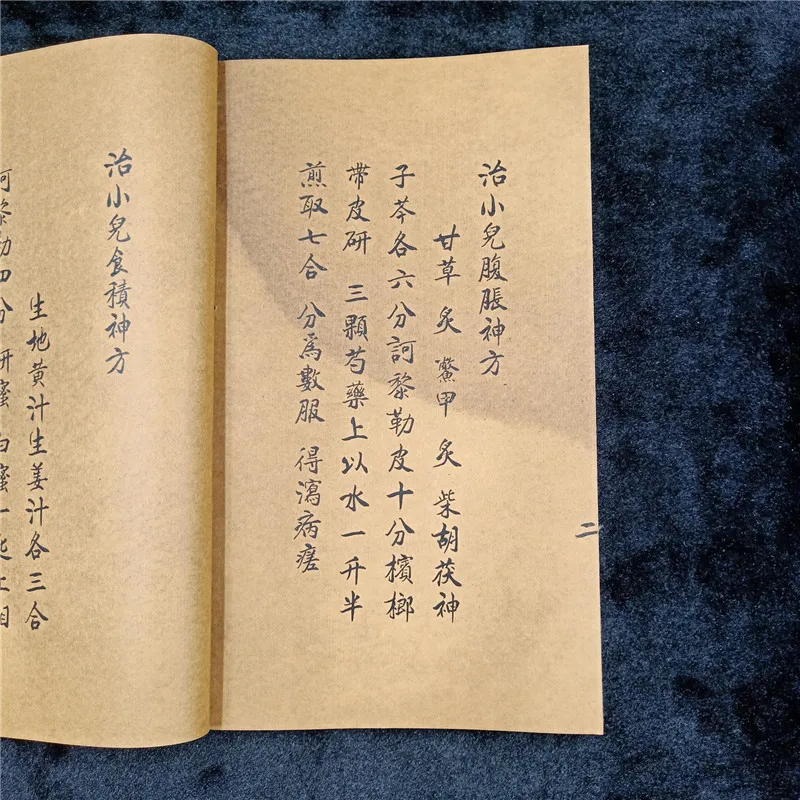 治小兒腹脹神方
甘草 炙 鱉甲 炙 柴胡茯神
子芩各六分訶黎勒皮十分檳榔
帶皮研 三顆芍藥上以水一升半
煎取七合 分為數服 得瀉病瘥
二
治小兒食積神方
生地黃汁生姜汁各三合
訶黎勒四分 研蜜 白蜜一匙上相